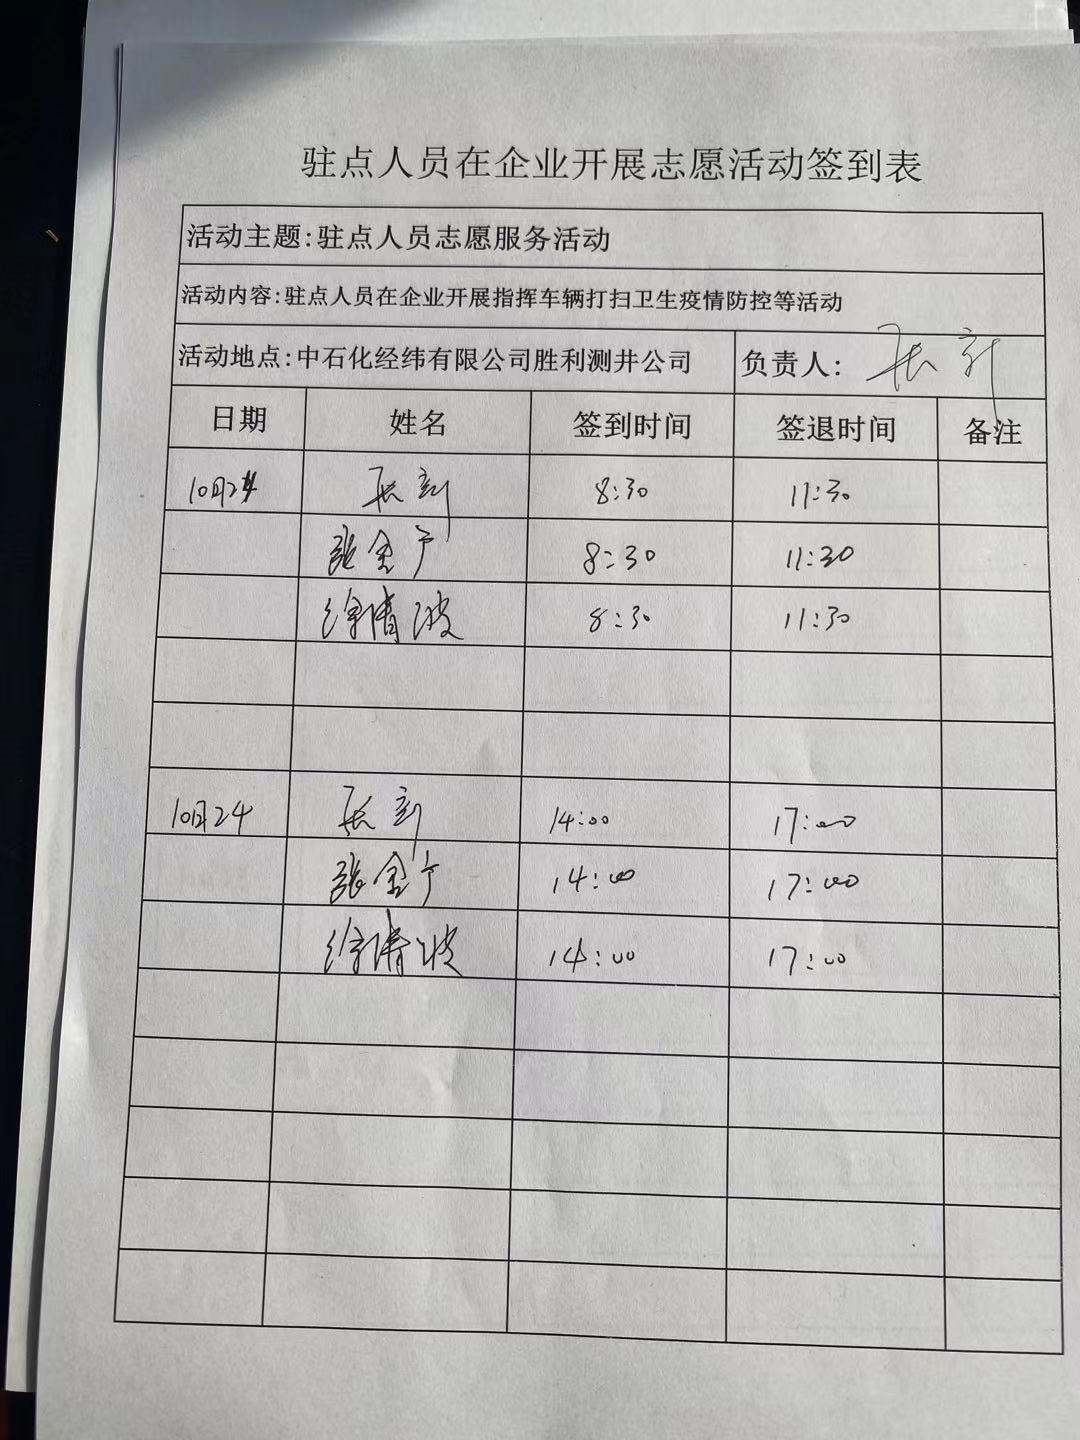 驻点人员在企业开展志愿活动签到表
活动主题:驻点人员志愿服务活动
活动内容:驻点人员在企业开展指挥车辆打扫卫生疫情防控等活动
活动地点:中石化经纬有限公司胜利测井公司 负责人:
日期 姓名 签到时间 签退时间 备注
10月24 8:30 11:30
张金广 8:30 11:30
徐清波 8:30 11:30
10月24 14:00 17:00
张金广 14:00 17:00
徐清波 14:00 17:00